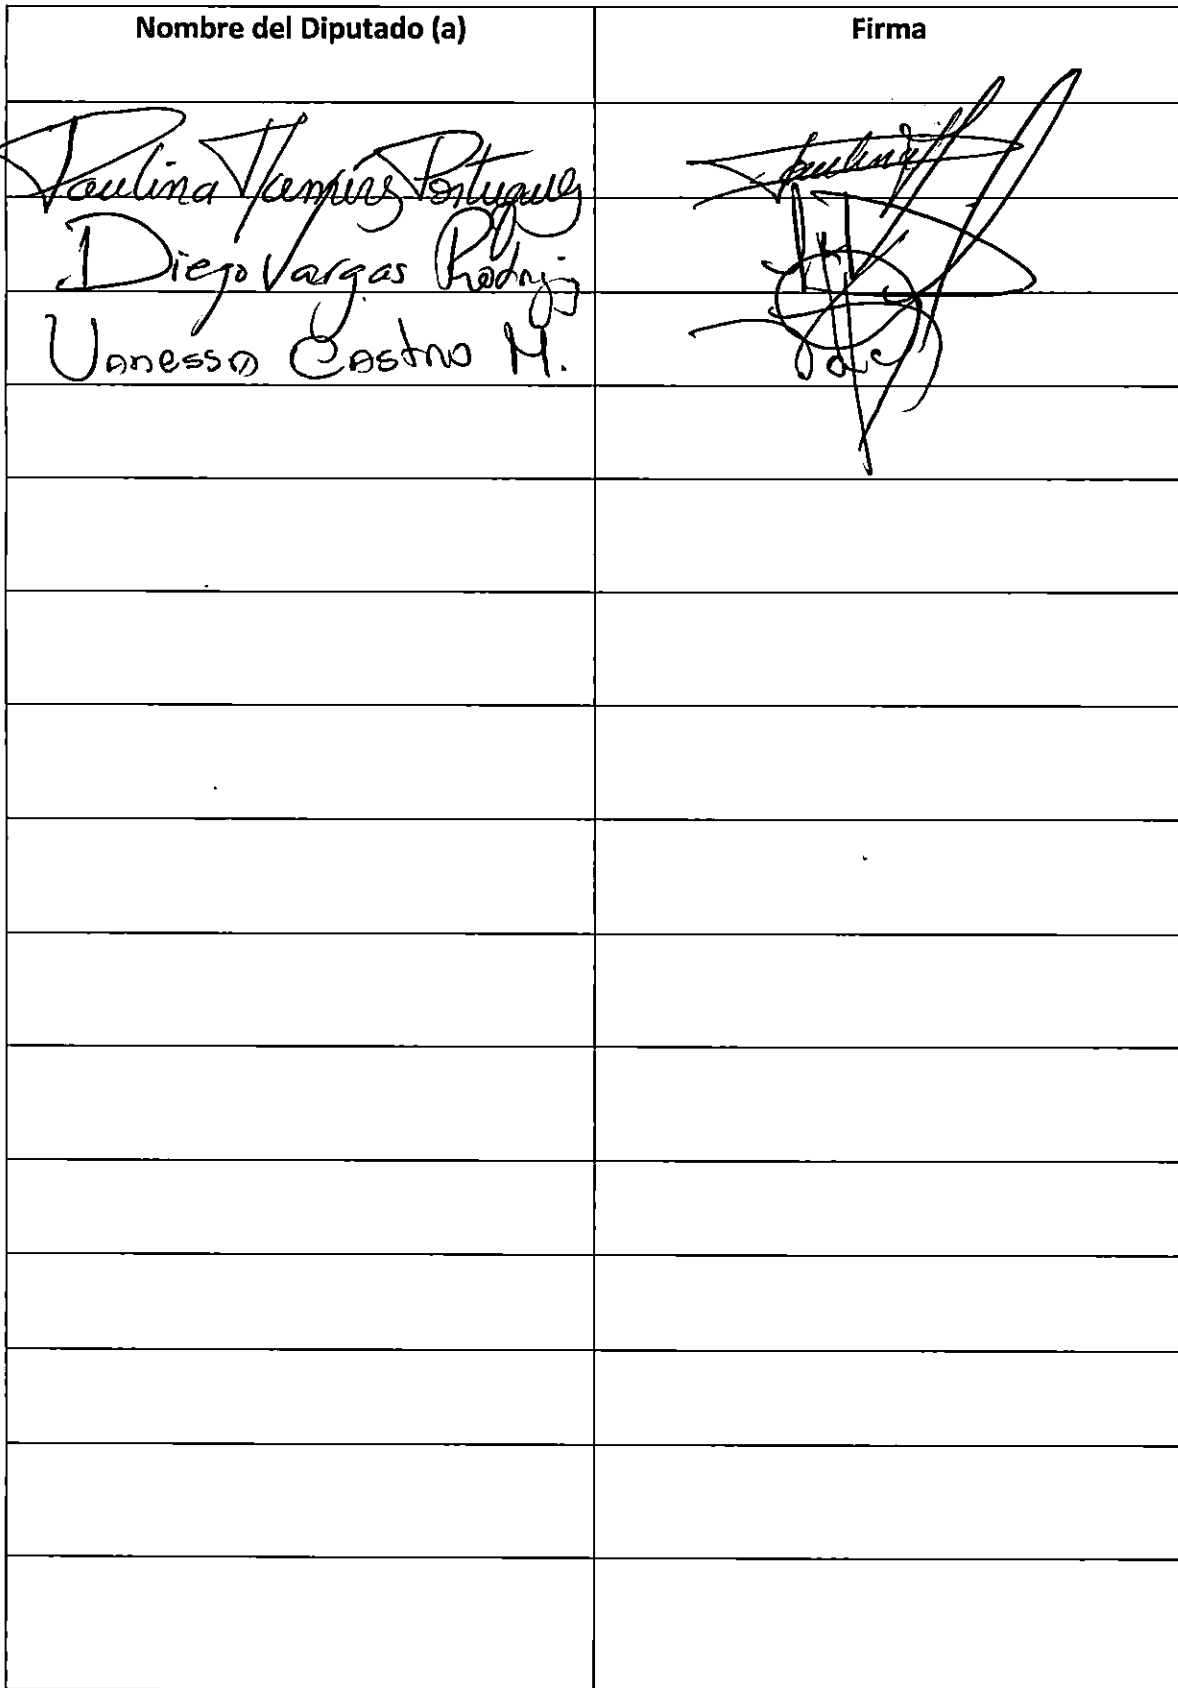 Nombre del Diputado (a) Firma
Paulina Ramírez Portuguez Paulina
Diego Vargas Rodríg
Vanessa Castro M.